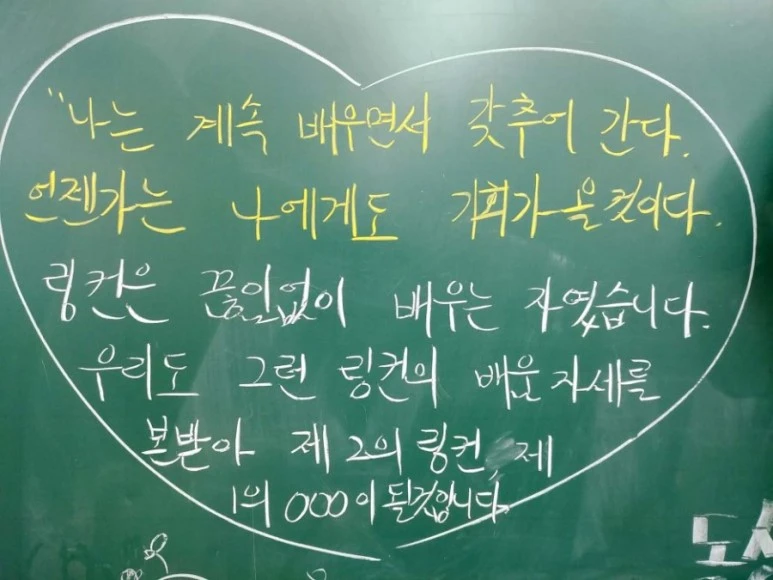 "나는 계속 배우면서 갖추어 간다.
언젠가는 나에게도 기회가 올 것이다.
링컨은 끊임없이 배우는 자였습니다.
우리도 그런 링컨의 배움 자세를
본받아 제 2의 링컨, 제
1의 000이 될것입니다.
도